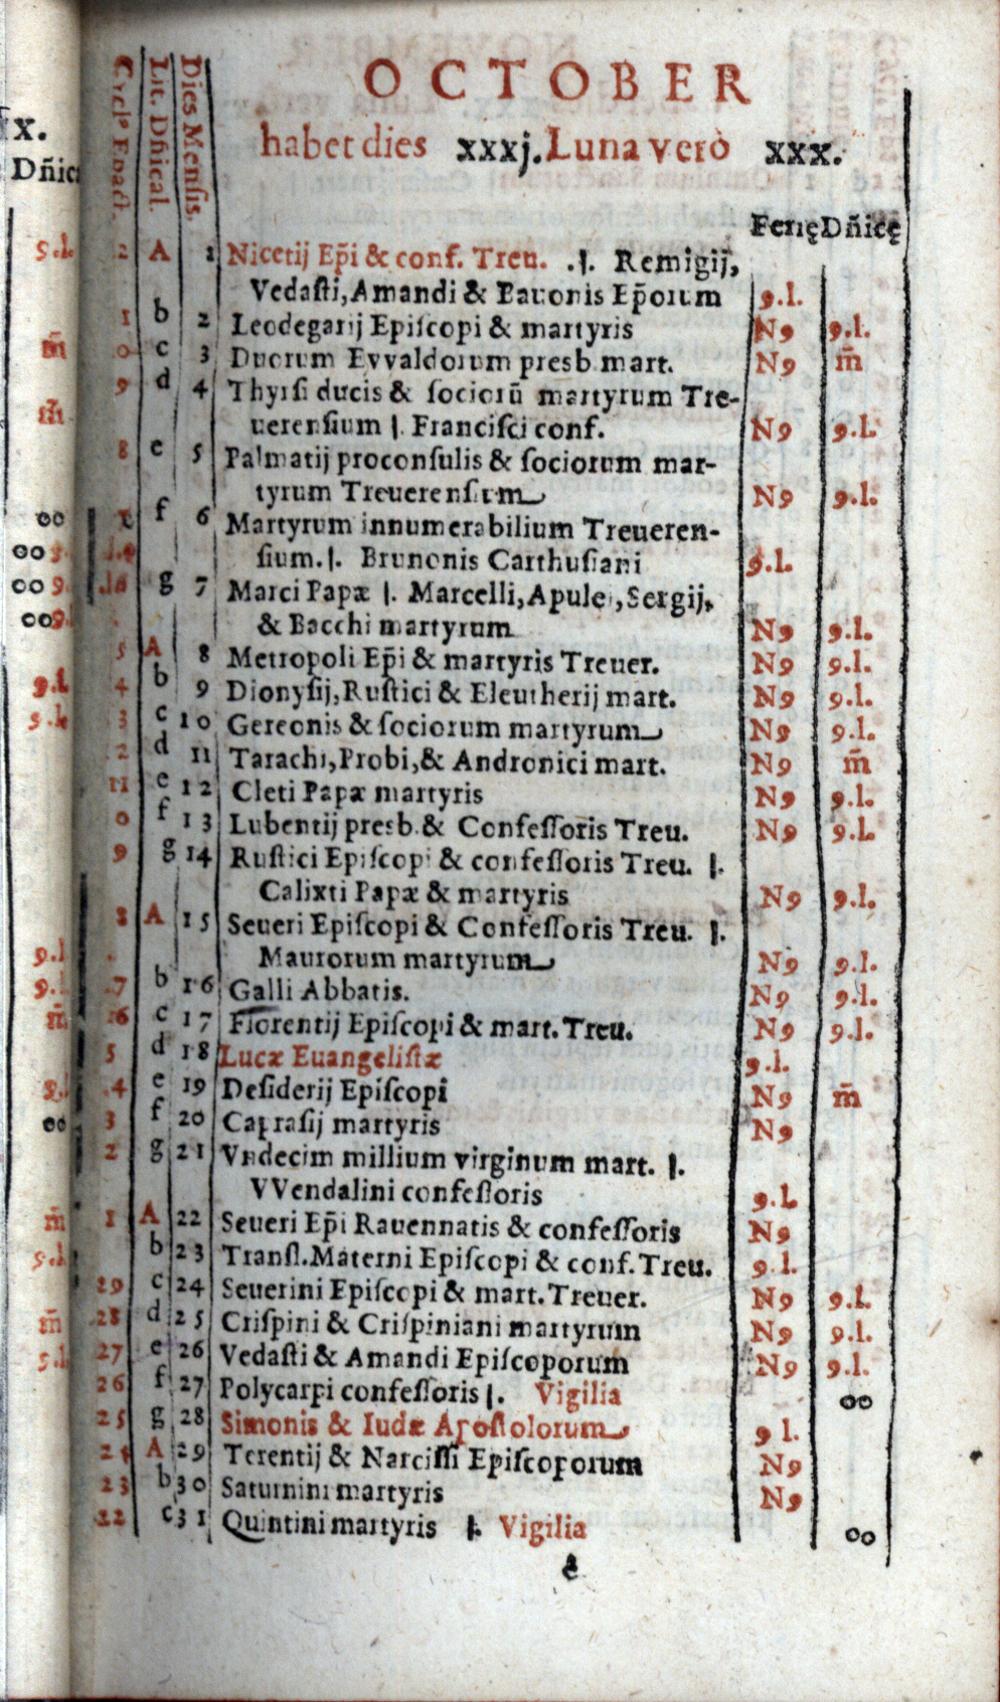 OCTOBER
habet dies xxxj. Luna verò xxx.
Cycl⁹ Epact. Lit. Dñical. Dies Mensis. Ferię Dñicę
2 A 1 Nicetij Ep̃i & conf. Treu. .|. Remigij,
Vedasti, Amandi & Bauonis Ep̃orum 9.l.
1 b 2 Leodegarij Episcopi & martyris N9 9.l.
0 c 3 Duorum Evvaldorum presb. mart. N9 m̃
9 d 4 Thyrsi ducis & sociorũ martyrum Tre-
uerensium |. Francisci conf. N9 9.l.
8 e 5 Palmatij proconsulis & sociorum mar-
tyrum Treuerensium N9 9.l.
f 6 Martyrum innumerabilium Treueren-
sium. |. Brunonis Carthusiani 9.l.
g 7 Marci Papæ |. Marcelli, Apulei, Sergij,
& Bacchi martyrum N9 9.l.
5 A 8 Metropoli Ep̃i & martyris Treuer. N9 9.l.
4 b 9 Dionysij, Rustici & Eleutherij mart. N9 9.l.
3 c 10 Gereonis & sociorum martyrum N9 9.l.
2 d 11 Tarachi, Probi, & Andronici mart. N9 m̃
11 e 12 Cleti Papæ martyris N9 9.l.
0 f 13 Lubentij presb. & Confessoris Treu. N9 9.l.
9 g 14 Rustici Episcopi & confessoris Treu. |.
Calixti Papæ & martyris N9 9.l.
8 A 15 Seueri Episcopi & Confessoris Treu. |.
Maurorum martyrum N9 9.l.
7 b 16 Galli Abbatis. N9 9.l.
16 c 17 Florentij Episcopi & mart. Treu. N9 9.l.
5 d 18 Lucæ Euangelistæ 9.l.
4 e 19 Desiderij Episcopi N9 m̃
3 f 20 Caprasij martyris N9
2 g 21 Vndecim millium virginum mart. |.
VVendalini confessoris 9.l.
1 A 22 Seueri Ep̃i Rauennatis & confessoris N9
b 23 Transl. Materni Episcopi & conf. Treu. 9.l.
29 c 24 Seuerini Episcopi & mart. Treuer. N9 9.l.
28 d 25 Crispini & Crispiniani martyrum N9 9.l.
27 e 26 Vedasti & Amandi Episcoporum N9 9.l.
26 f 27 Polycarpi confessoris |. Vigilia oo
25 g 28 Simonis & Iudæ Apostolorum 9 l.
24 A 29 Terentij & Narcissi Episcoporum N9
23 b 30 Saturnini martyris N9
22 c 31 Quintini martyris |. Vigilia oo
e